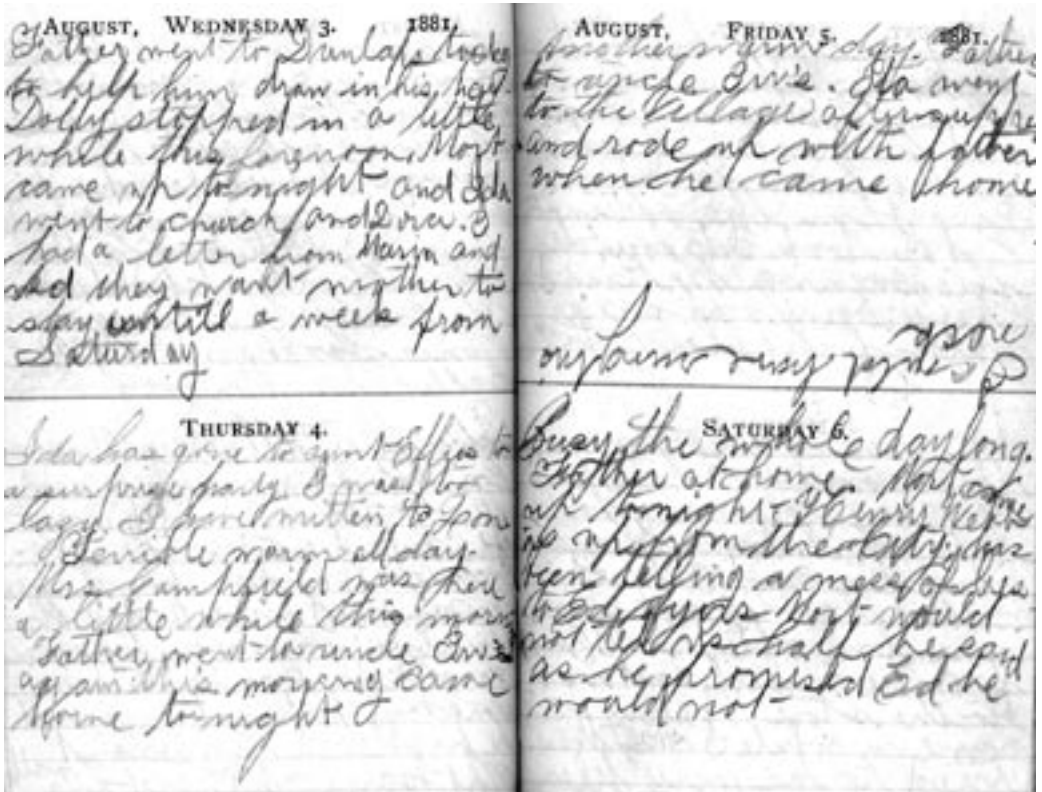 AUGUST, WEDNESDAY 3. 1881.
Father went to Dunlaps to
to help him draw in his hay.
Dolly stopped in a little
while this forenoon. Mort
came up to night and Ida
went to church and I
had a letter from and
they want mother to
stay untill a week from
Saturday
THURSDAY 4.
Ida has gone to aunt Effies to
a surprise party I was too
lazy I have written to
Terrible warm all day.
Mrs Campfield was here
a little while this morn
Father went to uncle
again this morning came
home to night
AUGUST, FRIDAY 5. 1881.
Another warm day. Father
to uncle . Ida went
to the village after
and rode up with father
when he came home
SATURDAY 6.
Busy the whole day long.
Father at home. Mort came
up tonight. Henry
is up from the City, has
been telling a mess of lies
to Ed Mort would
not tell us half he said
as he promised Ed he
would not